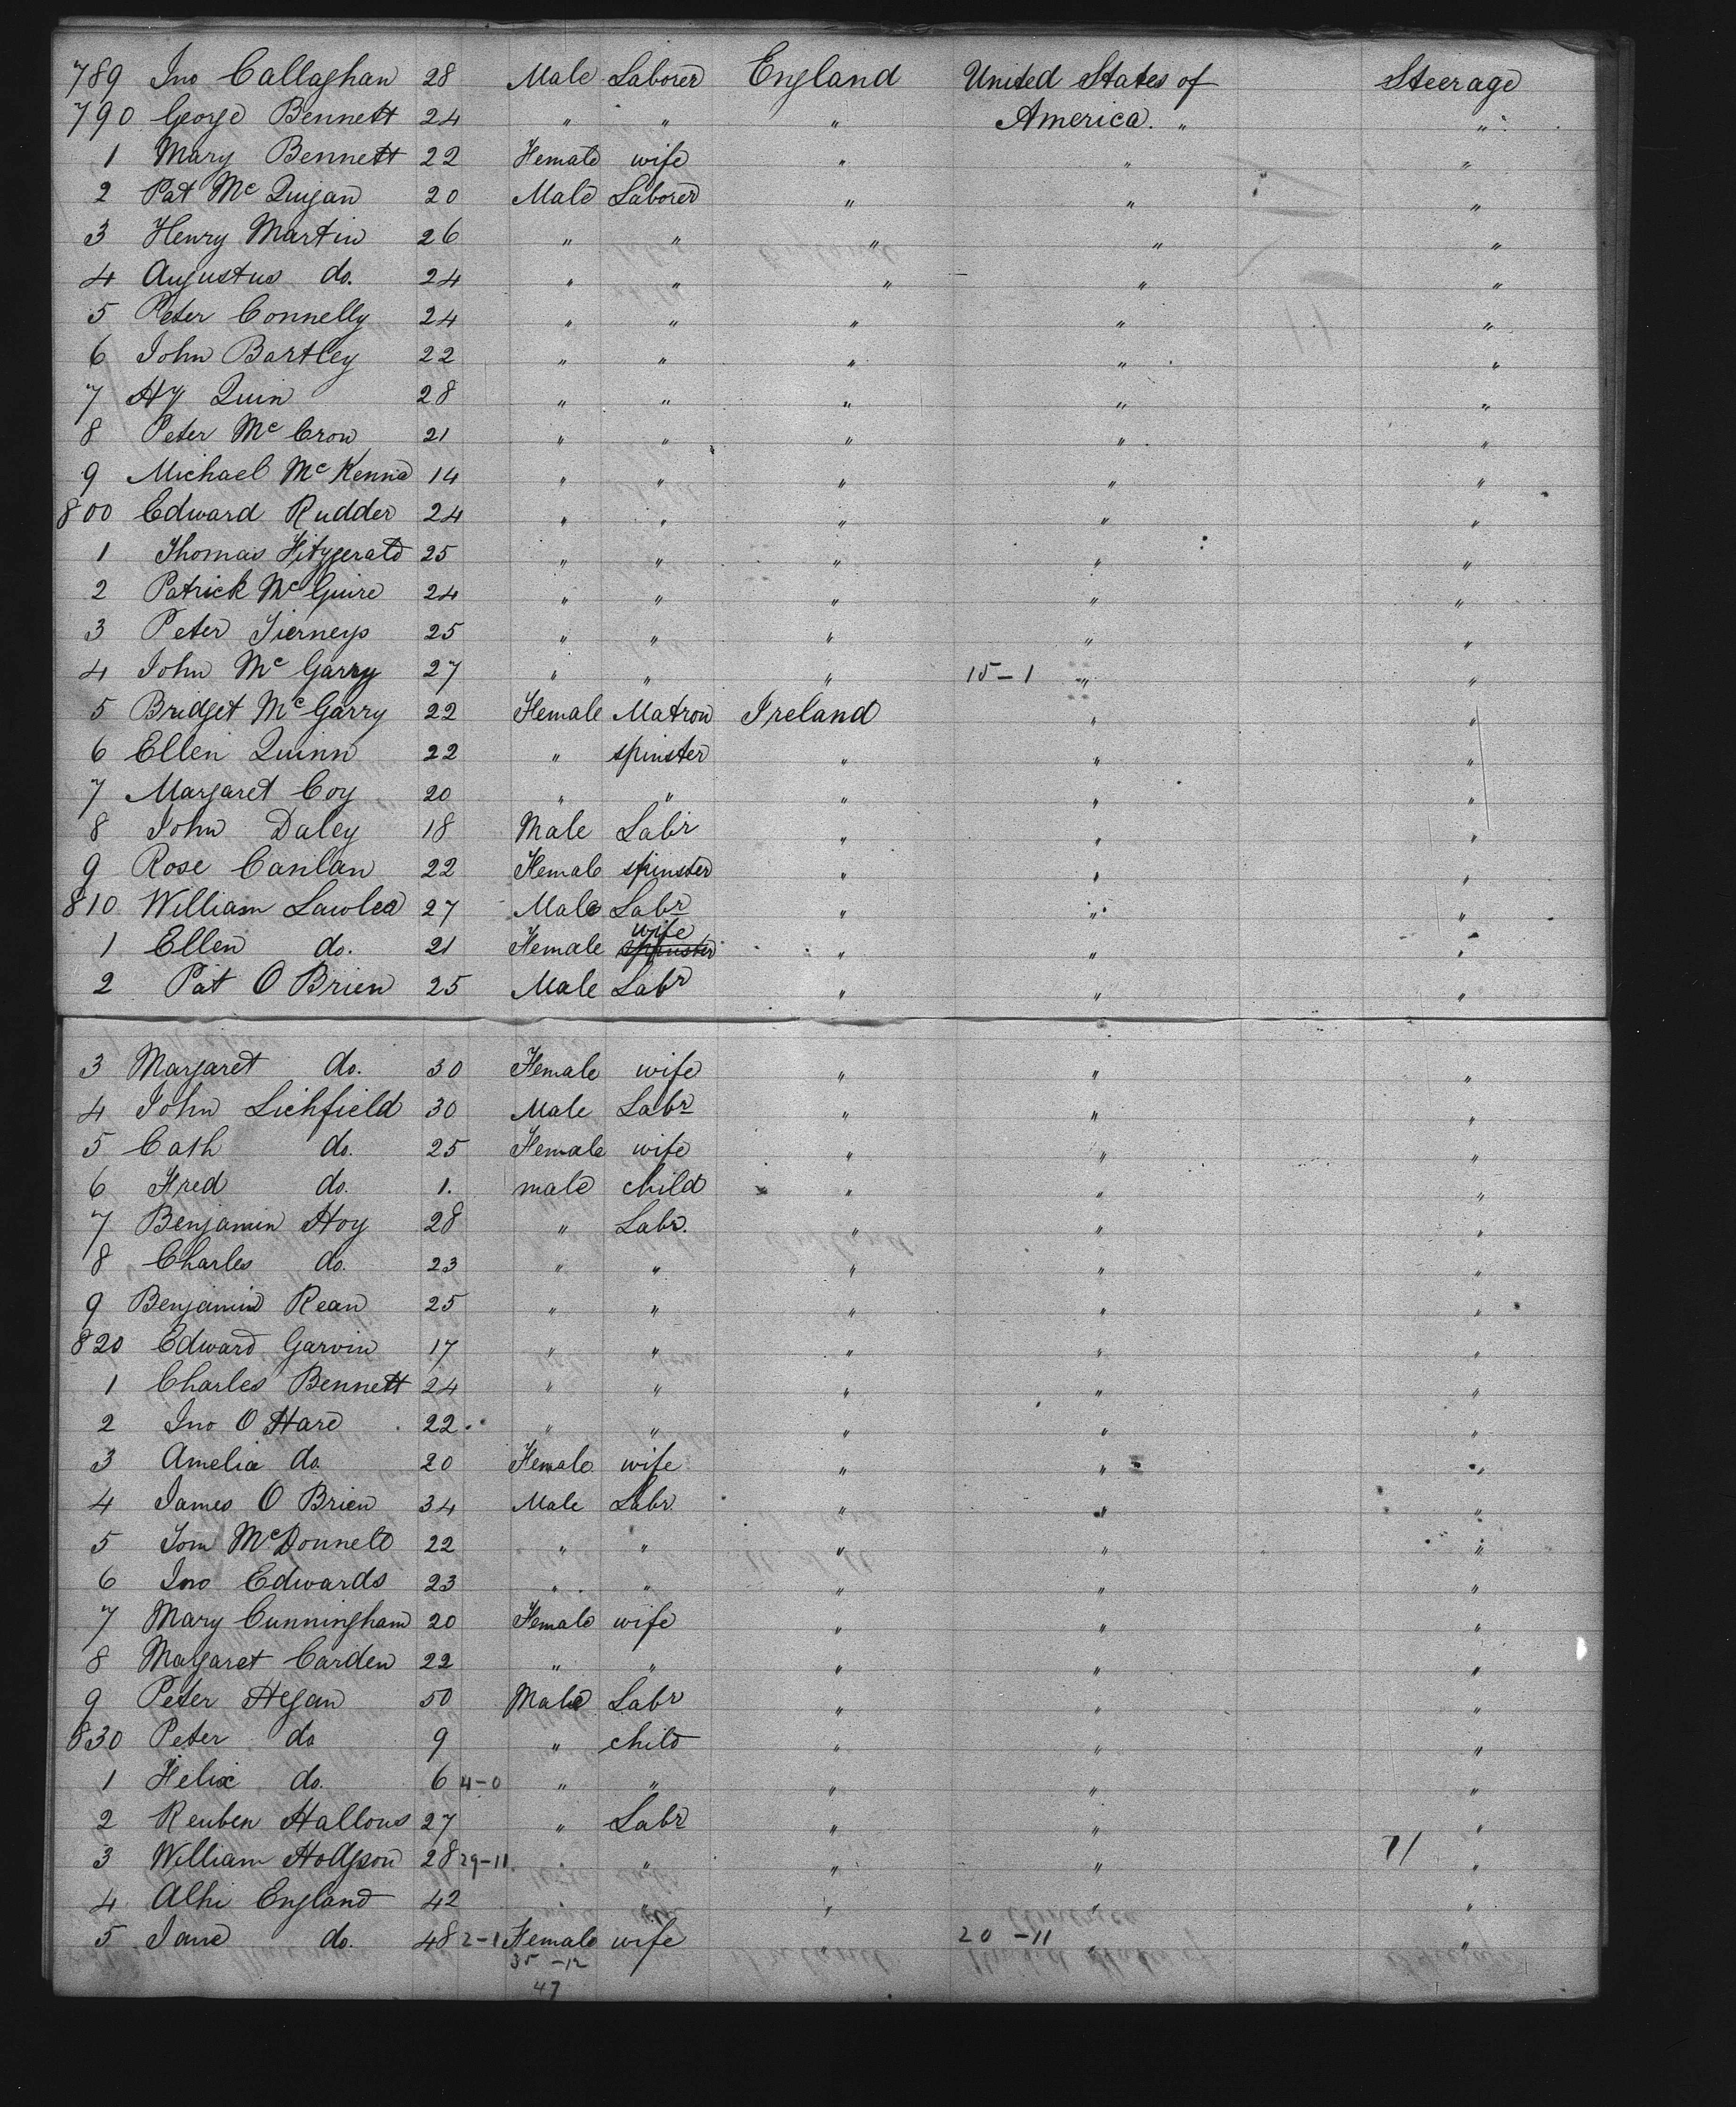 789 Jno Callaghan 28 Male Laborer England United States of Steerage
790 George Bennett 24 " " " America. " "
1 Mary Bennett 22 Female wife " " "
2 Pat Mc Quigan 20 Male Laborer " " "
3 Henry Martin 26 " " " " "
4 Augustus do. 24 " " " " "
5 Peter Connelly 24 " " " " "
6 John Bartley 22 " " " " "
7 Hy Quin 28 " " " " "
8 Peter Mc Crow 21 " " " " "
9 Michael Mc Kenna 14 " " " " "
800 Edward Rudder 24 " " " " "
1 Thomas Fitzgerald 25 " " " " "
2 Patrick Mc Guire 24 " " " " "
3 Peter Tierneys 25 " " " " "
4 John Mc Garry 27 " " " 15-1 " "
5 Bridget Mc Garry 22 Female Matron Ireland " "
6 Ellen Quinn 22 " spinster " " "
7 Margaret Coy 20 " " " " "
8 John Daley 18 Male Labr " " "
9 Rose Canlan 22 Female spinster " " "
810 William Lawlea 27 Male Labr " " "
1 Ellen do. 21 Female spinster wife " " "
2 Pat O Brien 25 Male Labr " " "
3 Margaret do. 30 Female wife " " "
4 John Lichfield 30 Male Labr " " "
5 Cath do. 25 Female wife " " "
6 Fred do. 1. male child " " "
7 Benjamin Hoy 28 " Labr. " " "
8 Charles do. 23 " " " " "
9 Benjamin Rean 25 " " " " "
820 Edward Garvin 17 " " " " "
1 Charles Bennett 24 " " " " "
2 Jno O Hare 22 " " " " "
3 Amelia do. 20 Female wife " " "
4 James O Brien 34 Male Labr " " "
5 Tom McDonnell 22 " " " " "
6 Jno Edwards 23 " " " " "
7 Mary Cunningham 20 Female wife " " "
8 Margaret Carden 22 " " " " "
9 Peter Hegan 50 Male Labr " " "
830 Peter do 9 " child " " "
1 Felix do. 6 4-0 " " " " "
2 Reuben Hallous 27 " Labr " " "
3 William Hodgson 28 29-11 " " " " 71 "
4 Alhi England 42 " " " " "
5 Jane do. 48 2-1 Female wife 20-11 " "
35-12
47